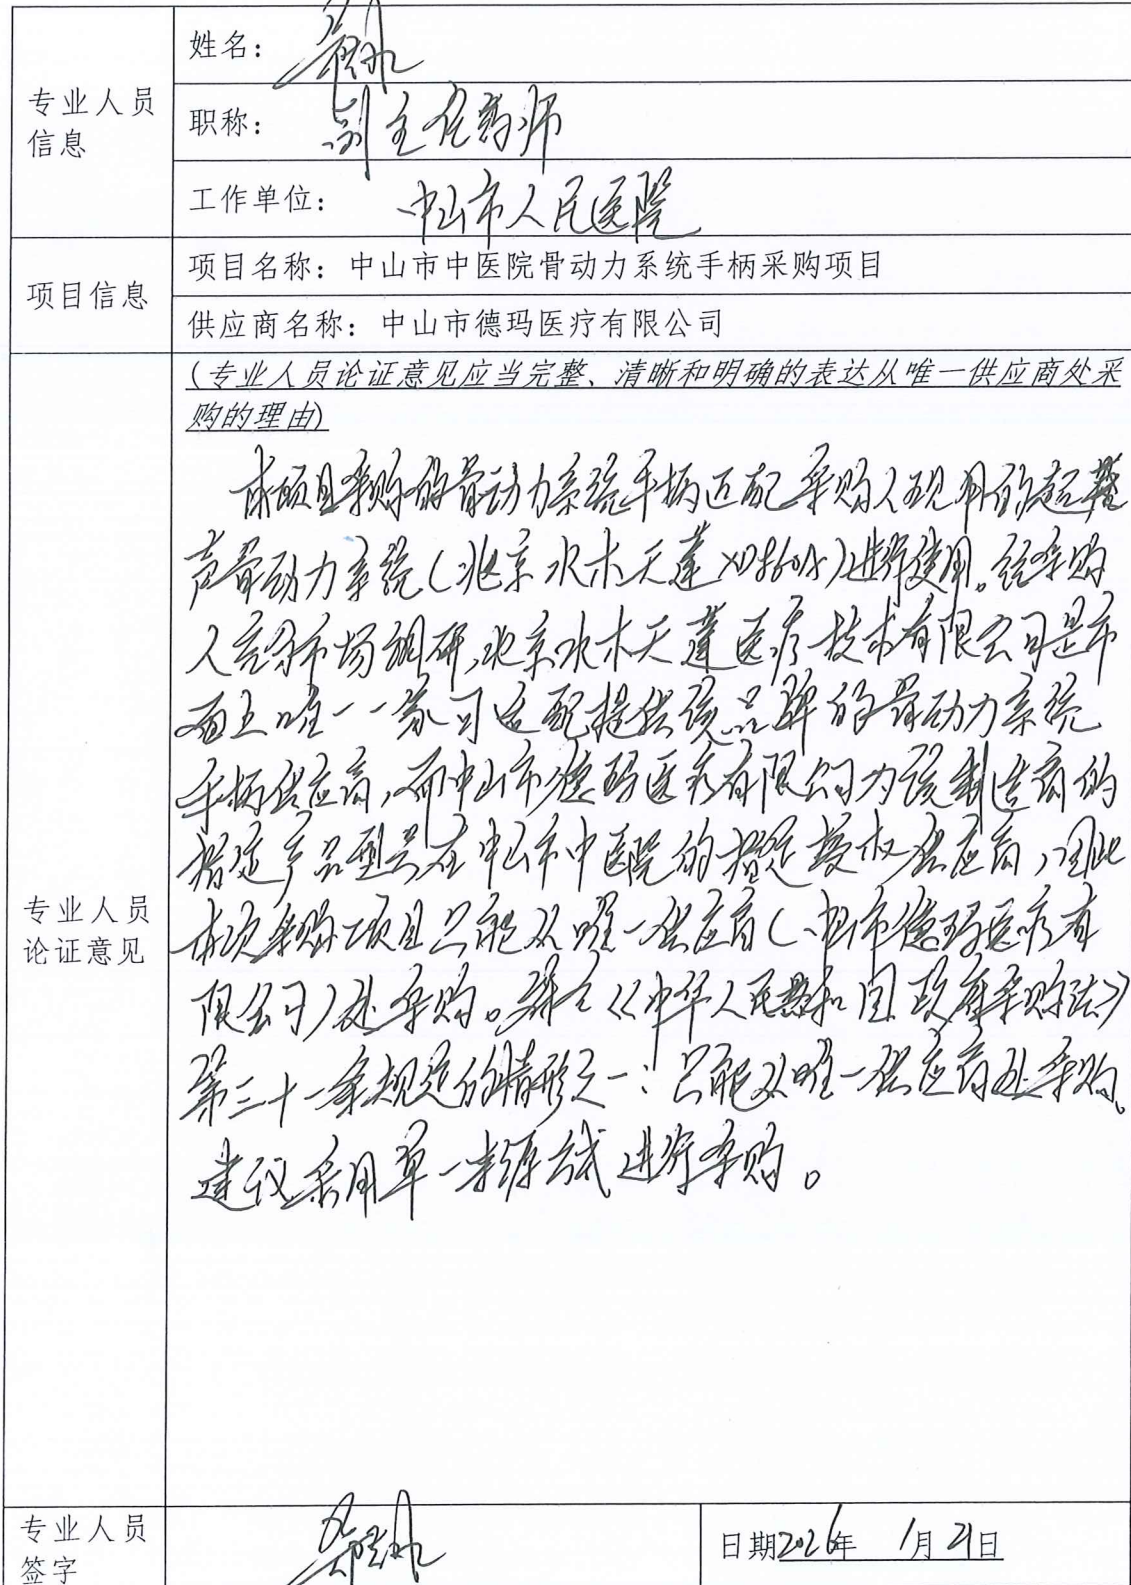 专业人员
信息
姓名：
职称： 副主任药师
工作单位： 中山市人民医院
项目信息
项目名称：中山市中医院骨动力系统手柄采购项目
供应商名称：中山市德玛医疗有限公司
专业人员
论证意见
(专业人员论证意见应当完整、清晰和明确的表达从唯一供应商处采
购的理由)
本项目采购的骨动力系统手柄匹配采购人现用的超
声骨动力系统(北京水木天蓬)进行使用。经采购
人充分市场调研,北京水木天蓬医疗技术有限公司是市
面上唯一一家可适配提供该品牌的骨动力系统
手柄供应商,而中山市德玛医疗有限公司为该制造商的
指定产品型号在中山市中医院的指定授权供应商,因此
本次采购项目只能从唯一供应商(中山市德玛医疗有
限公司)处采购。符合《中华人民共和国政府采购法》
第三十一条规定的情形之一:只能从唯一供应商处采购。
建议采用单一来源方式进行采购。
专业人员
签字
日期2026年 1月21日